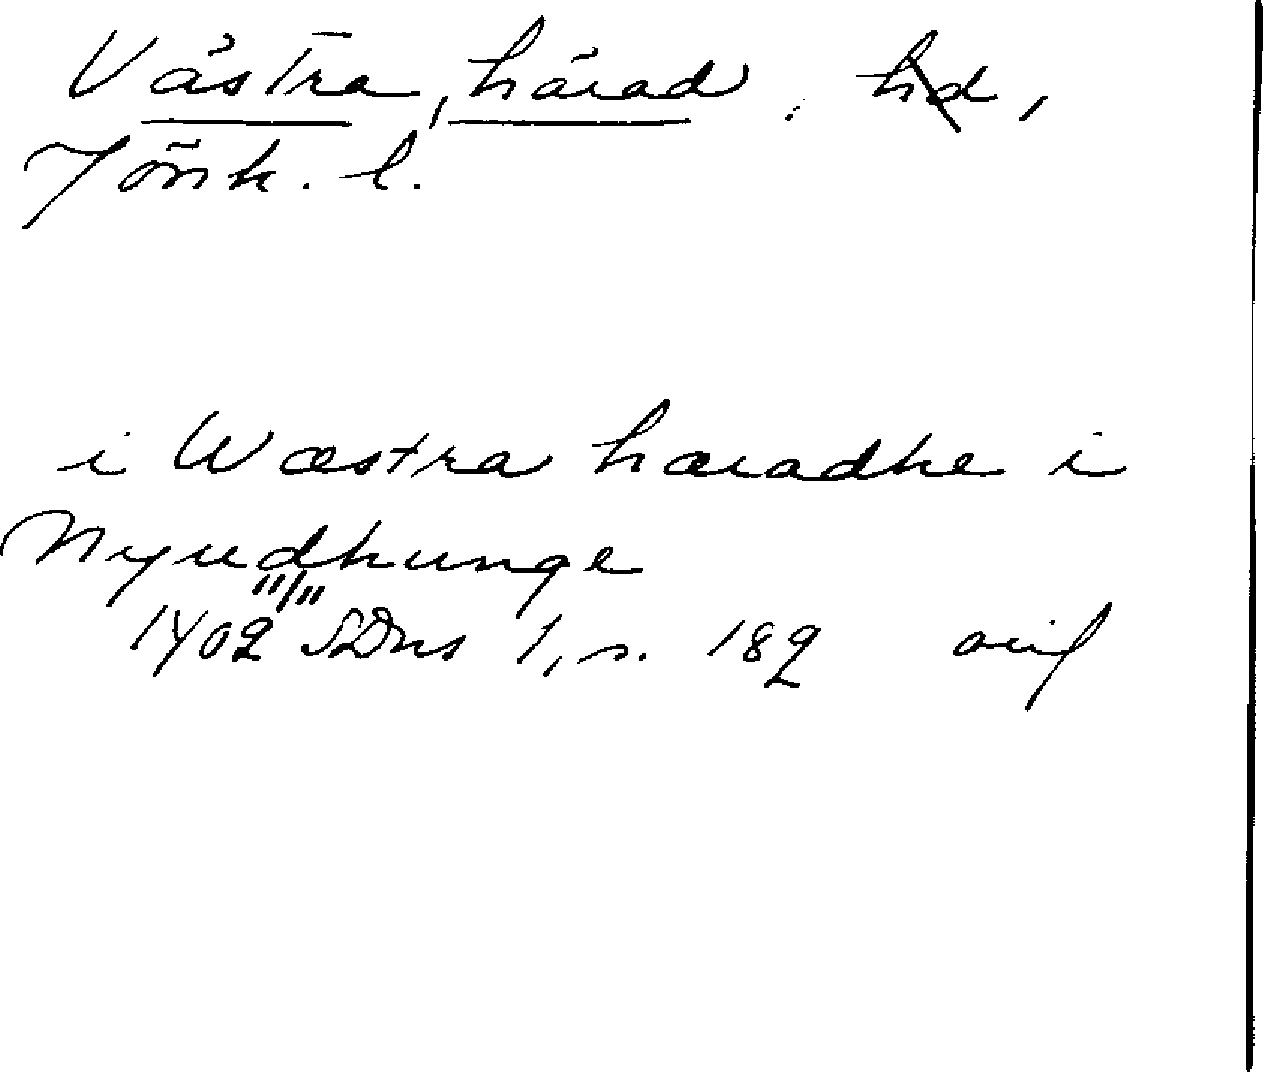 Västra, härad, hd,
Jönk. l.
i Wæstra hæradhe i
Nyudhunge
11/11
1402 SDns 1, s. 182 orig